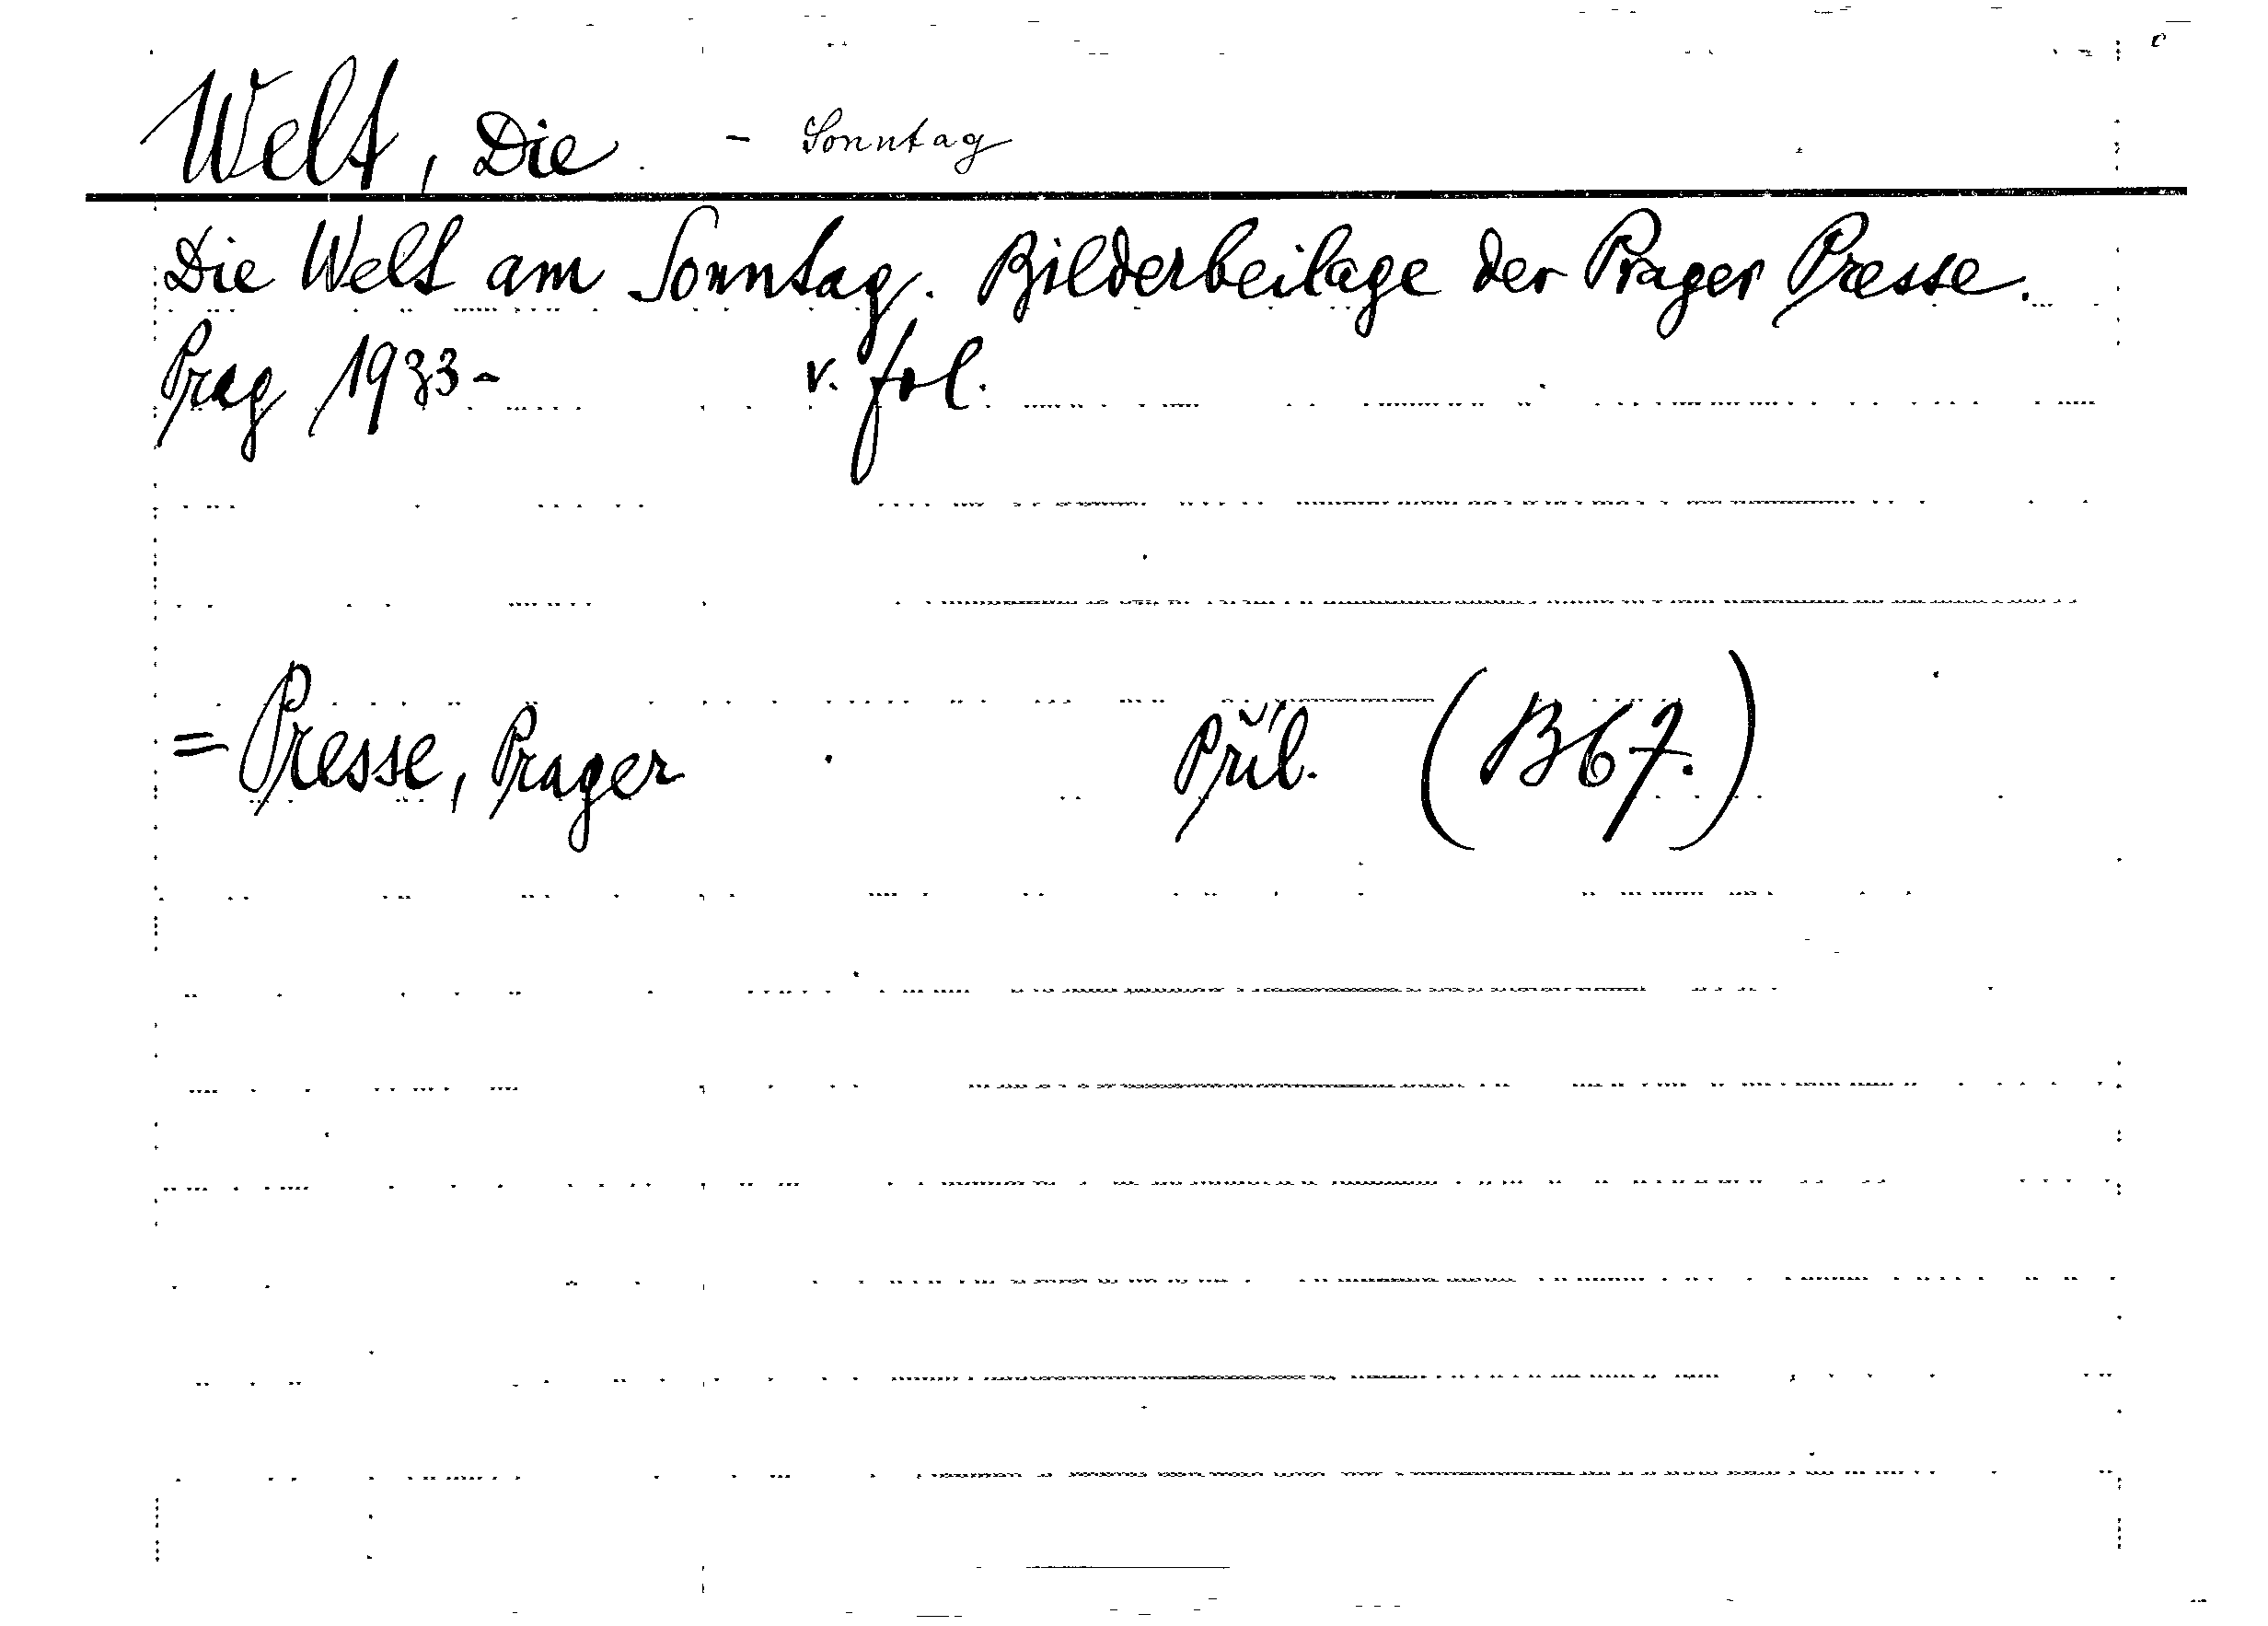 Welt, Die - Sonntag
Die Welt am Sonntag. Bilderbeilage der Prager Presse.
Prag 1933- v. fol.
= Presse, Prager Příl. (B67.)